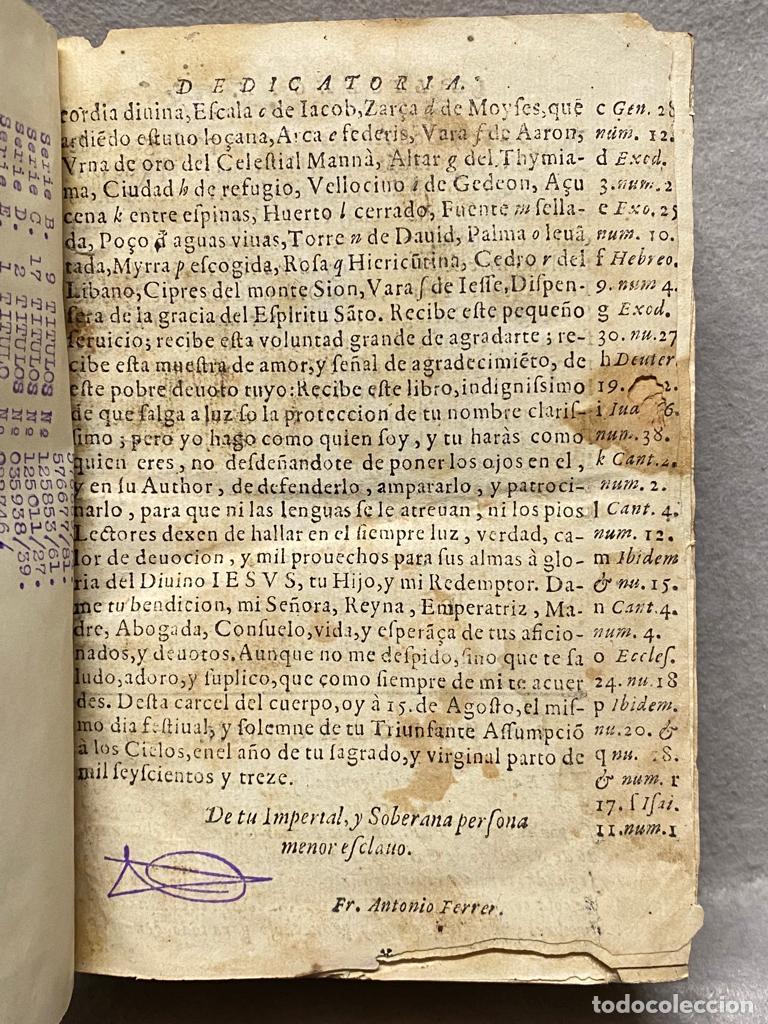 DEDICATORIA.
cordia diuina, Eſcala c de Iacob, Zarça d de Moyſes, quē
ardiēdo eſtuuo loçana, Arca e federis, Vara f de Aaron,
Vrna de oro del Celeſtial Mannà, Altar g del Thymia-
ma, Ciudad h de refugio, Vellocino i de Gedeon, Açu
cena k entre eſpinas, Huerto l cerrado, Fuente m ſella-
da, Poço de aguas viuas, Torre n de Dauid, Palma o leuā
tada, Myrra p eſcogida, Roſa q Hiericūtina, Cedro r del
Libano, Cipres del monte Sion, Vara ſ de Ieſſe, Diſpen-
ſera de la gracia del Eſpiritu Sāto. Recibe eſte pequeño
ſeruicio; recibe eſta voluntad grande de agradarte; re-
cibe eſta mueſtra de amor, y ſeñal de agradecimiēto, de
eſte pobre deuoto tuyo: Recibe eſte libro, indigniſsimo
de que ſalga a luz ſo la proteccion de tu nombre clariſ-
ſimo; pero yo hago como quien ſoy, y tu haràs como
quien eres, no deſdeñandote de poner los ojos en el,
y en ſu Author, de defenderlo, ampararlo, y patroci-
narlo, para que ni las lenguas ſe le atreuan, ni los pios
Lectores dexen de hallar en el ſiempre luz, verdad, ca-
lor de deuocion, y mil prouechos para ſus almas à glo-
ria del Diuino IESVS, tu Hijo, y mi Redemptor. Da-
me tu bendicion, mi Señora, Reyna, Emperatriz, Ma-
dre, Abogada, Conſuelo, vida, y eſperāça de tus aficio-
nados, y deuotos. Aunque no me deſpido, ſino que te ſa
ludo, adoro, y ſuplico, que como ſiempre de mi te acuer
des. Deſta carcel del cuerpo, oy à 15. de Agoſto, el miſ-
mo dia feſtiual, y ſolemne de tu Triunfante Aſſumpciō
à los Cielos, en el año de tu ſagrado, y virginal parto de
mil ſeyſcientos y treze.
De tu Imperial, y Soberana perſona
menor eſclauo.
Fr. Antonio Ferrer.
c Gen. 28
núm. 12.
d Exod.
3. num. 2
e Exo. 25
num. 10.
f Hebreo.
9. num 4.
g Exod.
30. nu. 27
h Deuter.
19. 2.
i Iud 6.
num. 38.
k Cant. 2.
num. 2.
l Cant. 4.
num. 12.
m Ibidem
& nu. 15.
n Cant. 4.
num. 4.
o Eccleſ.
24. nu. 18
p Ibidem.
nu. 20. &
q nu. 18.
& num. r
17. ſ Iſai.
11. num. 1
Serie B. 9 TITULOS Nº 576677/81.
Serie C. 17 TITULOS Nº 125853/61.
Serie D. 2 TITULOS Nº 125011/27.
Serie E. 1 TITULO Nº 035938/39.
todocoleccion